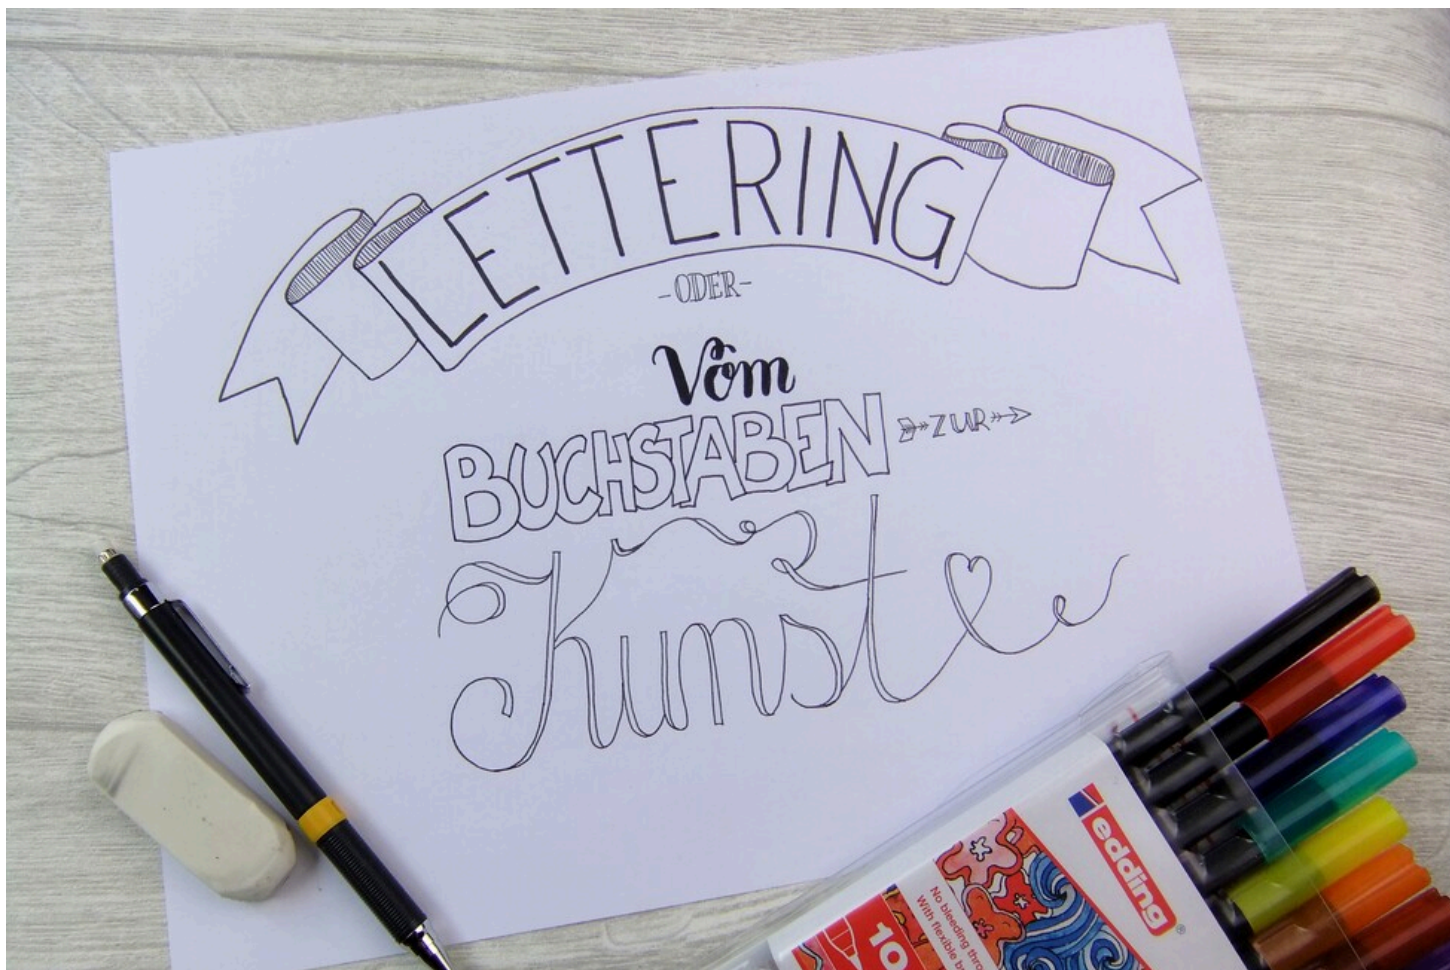 LETTERING
-ODER-
Vom
BUCHSTABEN ZUR
Kunst
edding®
10
No bleeding thro
With flexible b